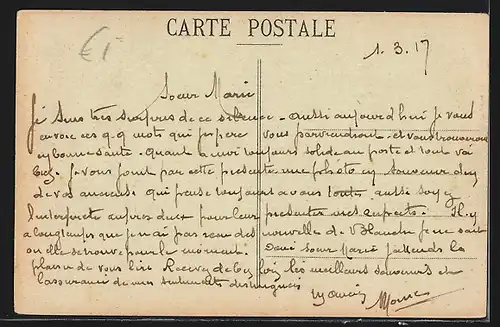 CARTE POSTALE
€1-
1.3.17
Soeur Marie
Je suis très surpris de ce silence - aussi aujourd'hui je vous
envoie ces q-q mots qui j'espère vous parviendront - et vous trouverons
en bonne santé - Quant a moi toujours solide au poste et tout va
bien. Je vous joint par cette présente une photo en souvenir d'un
de vos qui pense toujours a vous toutes aussi soyez
l'interprete auprès d'eux pour leur présenter mes respects. Il y
a longtemps que je n'ai pas reçu des nouvelle de Blanche je ne sait
ou elle se trouve pour le moment. Soeur Marie j'attends le
plaisir de vous lire Recevez les meilleurs souvenirs et
l'assurance de mes sentiments distingués